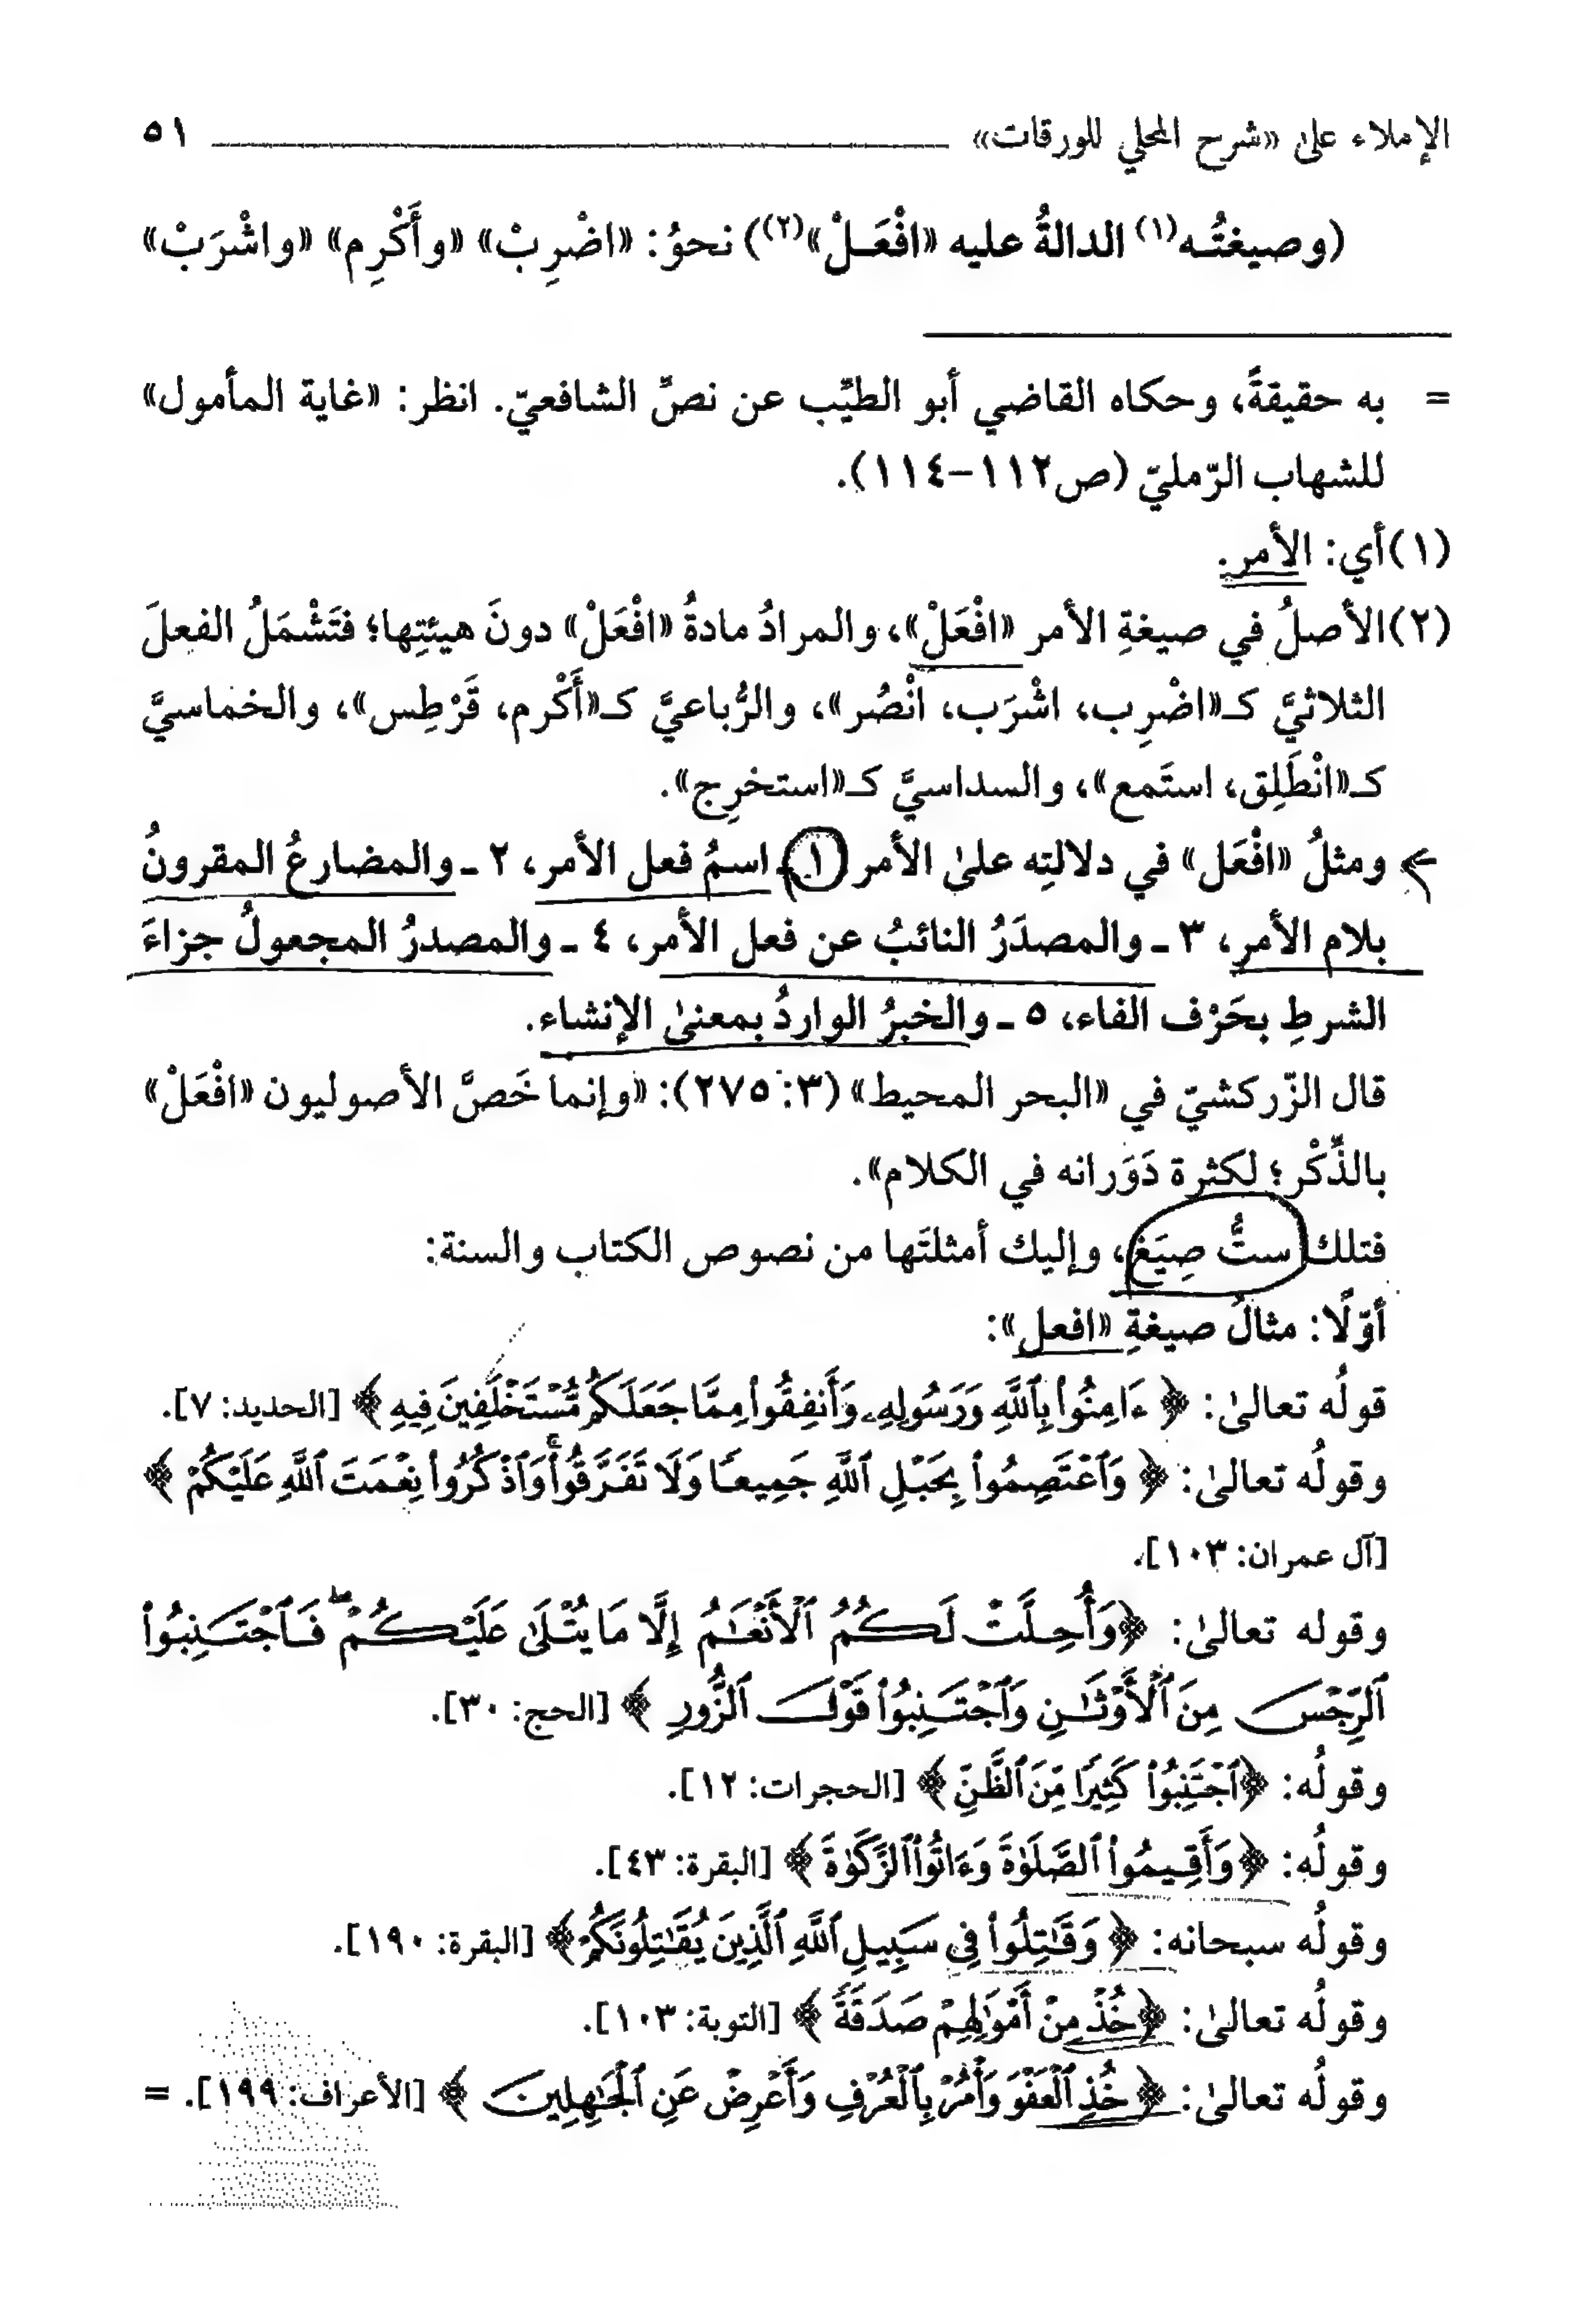 الإملاء على «شرح المحلي للورقات» ٥١
(وصيغتُـه(١) الدالةُ عليه «افْعَـلْ»(٢)) نحوُ: «اضْرِبْ» «وأَكْرِم» «واشْرَبْ»
= به حقيقةً، وحكاه القاضي أبو الطيِّب عن نصِّ الشافعيّ. انظر: «غاية المأمول»
للشهاب الرّمليّ (ص١١٢-١١٤).
(١) أي: الأمر.
(٢) الأصلُ في صيغةِ الأمر «افْعَلْ»، والمرادُ مادةُ «افْعَلْ» دونَ هيئتِها؛ فتَشْمَلُ الفعلَ
الثلاثيَّ كـ«اضْرِب، اشْرَب، انْصُر»، والرُّباعيَّ كـ«أَكْرم، قَرْطِس»، والخماسيَّ
كـ«انْطَلِق، استَمع»، والسداسيَّ كـ«استخرِج».
ومثلُ «افْعَل» في دلالتِه علىٰ الأمر ١ ـ اسمُ فعل الأمر، ٢ ـ والمضارعُ المقرونُ
بلام الأمر، ٣ ـ والمصدَرُ النائبُ عن فعل الأمر، ٤ ـ والمصدرُ المجعولُ جزاءَ
الشرطِ بحَرْف الفاء، ٥ ـ والخبرُ الواردُ بمعنىٰ الإنشاء.
قال الزّركشيّ في «البحر المحيط» (٣: ٢٧٥): «وإنما خَصَّ الأصوليون «افْعَلْ»
بالذِّكْر؛ لكثرة دَوَرانه في الكلام».
فتلك ستُّ صِيَغ، وإليك أمثلتَها من نصوص الكتاب والسنة:
أوّلًا: مثالُ صيغةِ «افعل»:
قولُه تعالىٰ: ﴿ ءَامِنُوا۟ بِٱللَّهِ وَرَسُولِهِۦ وَأَنفِقُوا۟ مِمَّا جَعَلَكُم مُّسْتَخْلَفِينَ فِيهِ ﴾ [الحديد: ٧].
وقولُه تعالىٰ: ﴿ وَٱعْتَصِمُوا۟ بِحَبْلِ ٱللَّهِ جَمِيعًا وَلَا تَفَرَّقُوا۟ۚ وَٱذْكُرُوا۟ نِعْمَتَ ٱللَّهِ عَلَيْكُمْ ﴾
[آل عمران: ١٠٣].
وقوله تعالىٰ: ﴿وَأُحِلَّتْ لَكُمُ ٱلْأَنْعَٰمُ إِلَّا مَا يُتْلَىٰ عَلَيْكُمْۖ فَٱجْتَنِبُوا۟
ٱلرِّجْسَ مِنَ ٱلْأَوْثَٰنِ وَٱجْتَنِبُوا۟ قَوْلَ ٱلزُّورِ ﴾ [الحج: ٣٠].
وقولُه: ﴿ٱجْتَنِبُوا۟ كَثِيرًا مِّنَ ٱلظَّنِّ ﴾ [الحجرات: ١٢].
وقولُه: ﴿وَأَقِيمُوا۟ ٱلصَّلَوٰةَ وَءَاتُوا۟ ٱلزَّكَوٰةَ ﴾ [البقرة: ٤٣].
وقولُه سبحانه: ﴿ وَقَٰتِلُوا۟ فِى سَبِيلِ ٱللَّهِ ٱلَّذِينَ يُقَٰتِلُونَكُمْ﴾ [البقرة: ١٩٠].
وقولُه تعالىٰ: ﴿خُذْ مِنْ أَمْوَٰلِهِمْ صَدَقَةً ﴾ [التوبة: ١٠٣].
وقولُه تعالىٰ: ﴿ خُذِ ٱلْعَفْوَ وَأْمُرْ بِٱلْعُرْفِ وَأَعْرِضْ عَنِ ٱلْجَٰهِلِينَ ﴾ [الأعراف: ١٩٩]. =